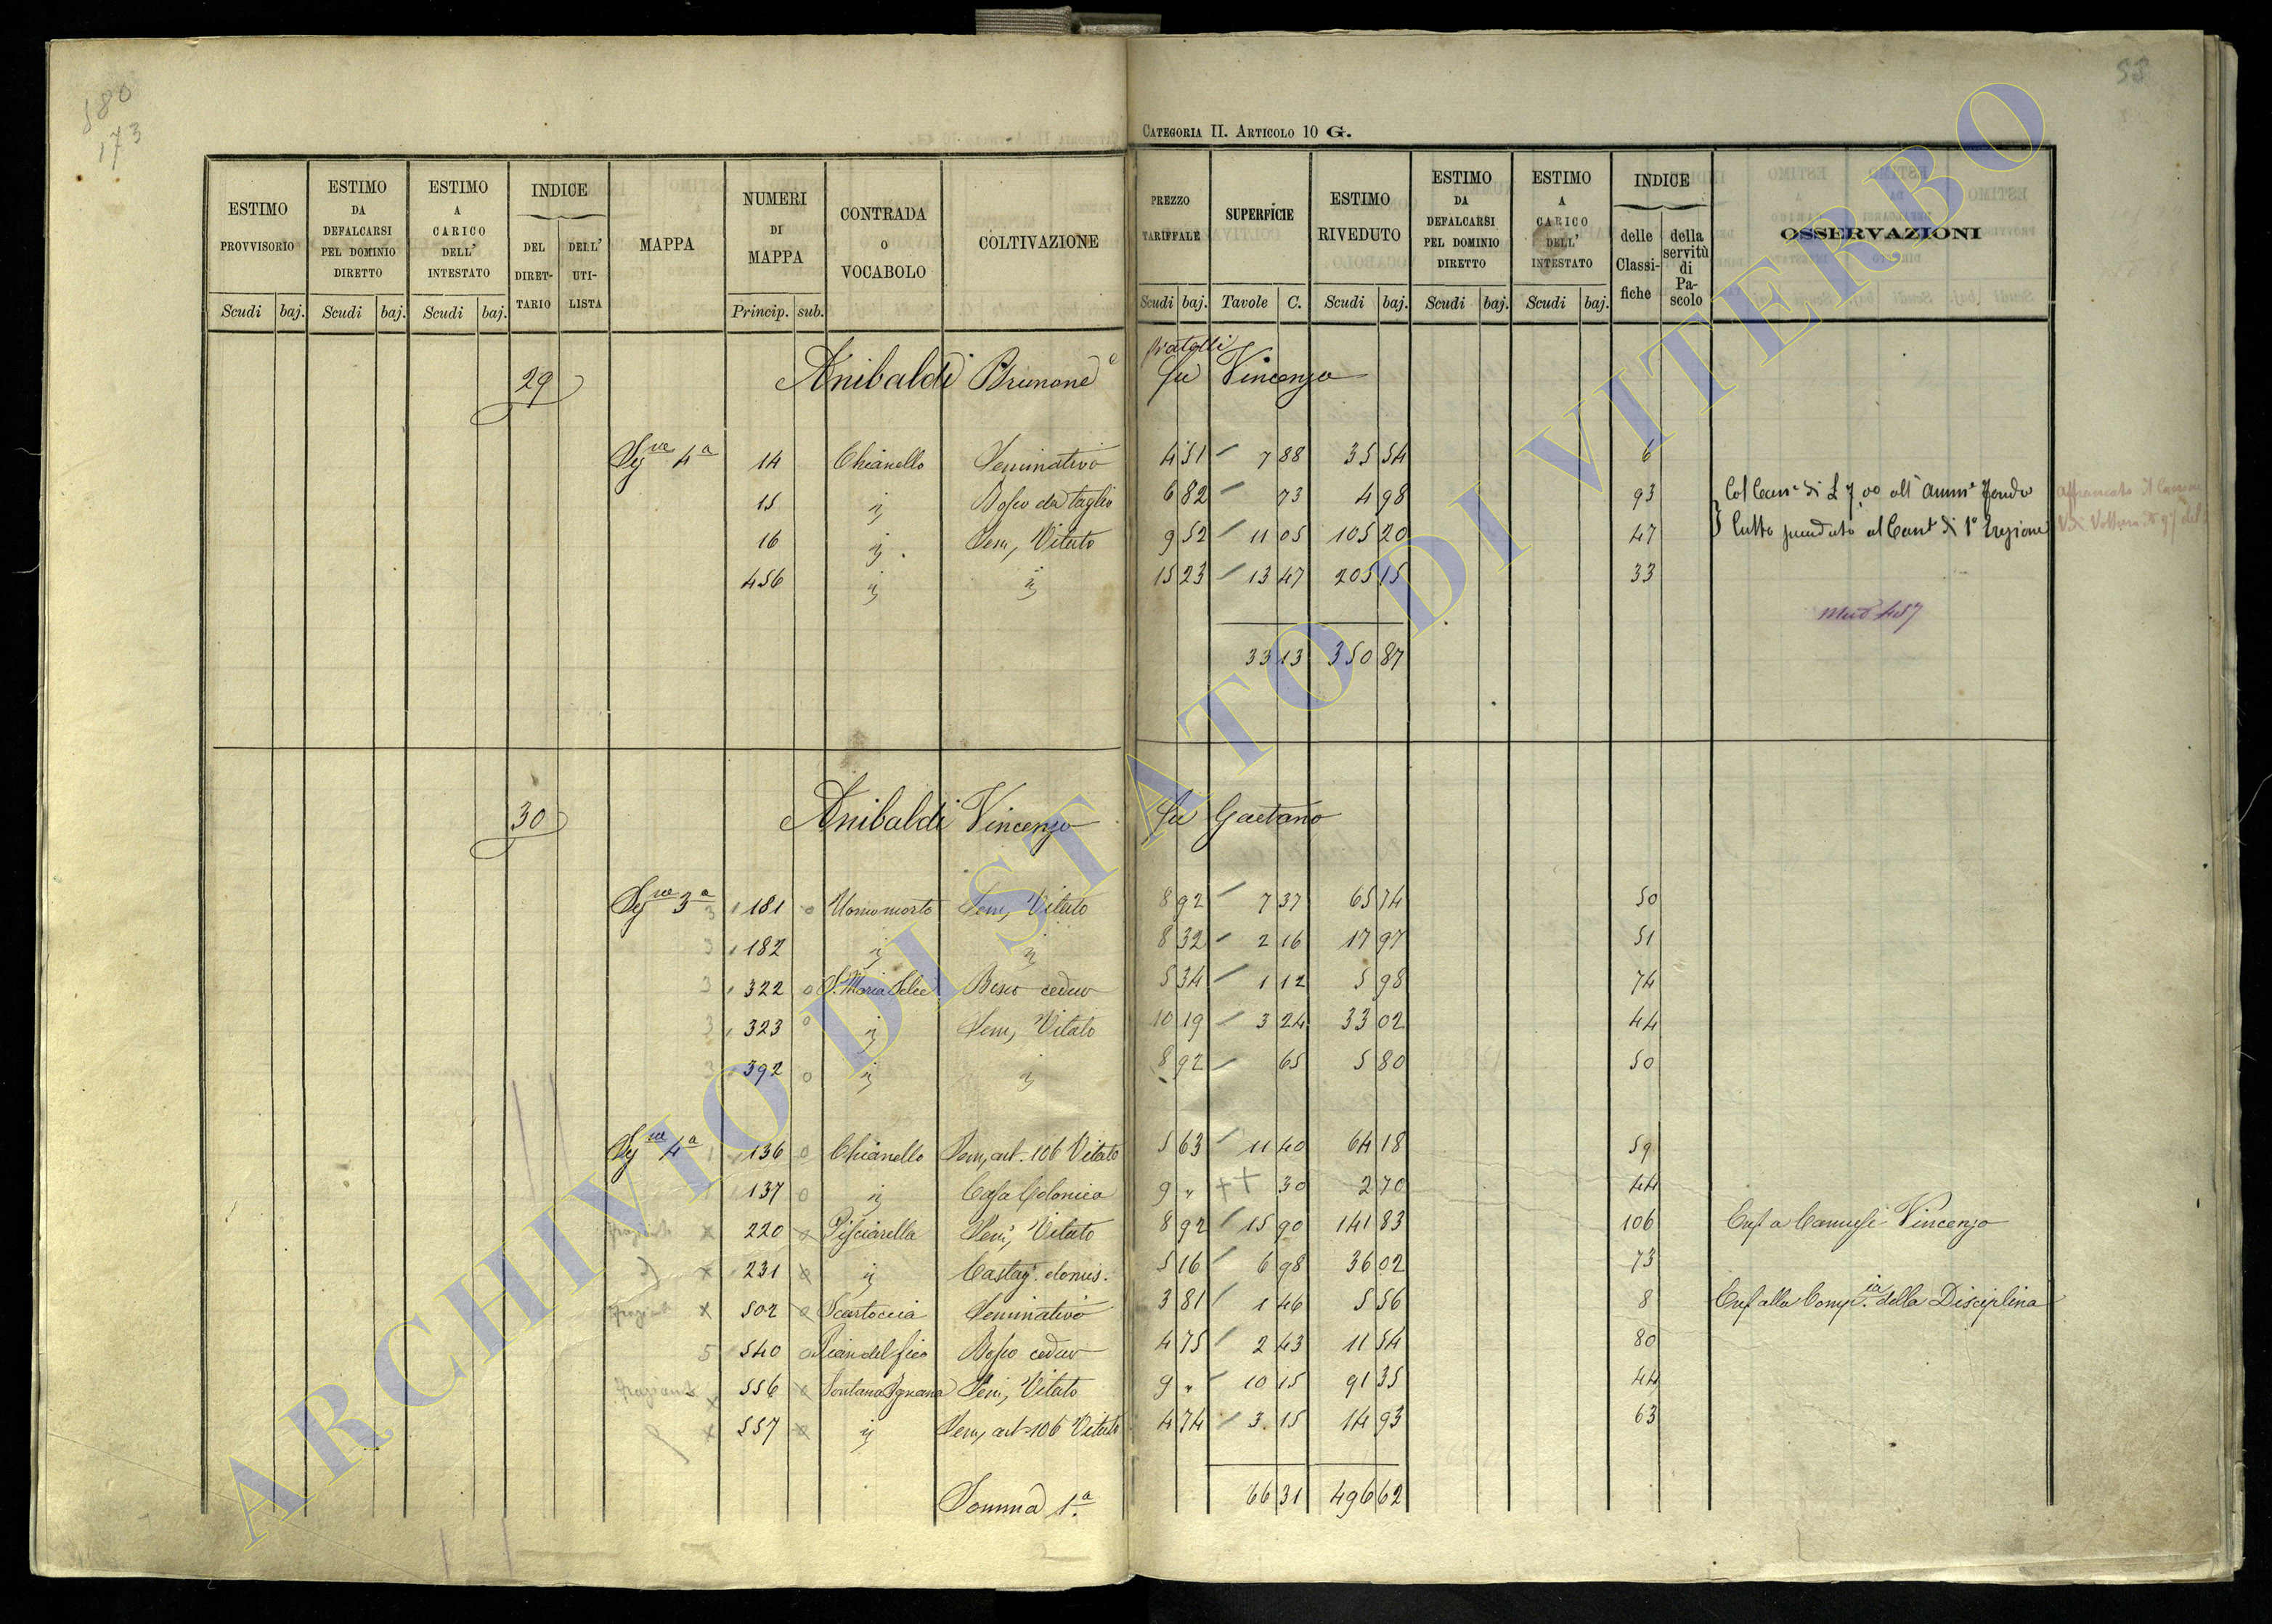 180
173
53
CATEGORIA II. ARTICOLO 10 G.
ESTIMO PROVVISORIO
ESTIMO DA DEFALCARSI PEL DOMINIO DIRETTO
ESTIMO A CARICO DELL' INTESTATO
INDICE
DEL DIRETTARIO
DELL' UTILISTA
MAPPA
NUMERI DI MAPPA
CONTRADA O VOCABOLO
COLTIVAZIONE
PREZZO TARIFFALE
SUPERFICIE
ESTIMO RIVEDUTO
ESTIMO DA DEFALCARSI PEL DOMINIO DIRETTO
ESTIMO A CARICO DELL' INTESTATO
INDICE
delle Classifiche
della servitù di Pascolo
OSSERVAZIONI
Scudi baj. Scudi baj. Scudi baj. Princip. sub. Scudi baj. Tavole C. Scudi baj. Scudi baj. Scudi baj.
29 Anibaldi Brunone e fratelli fu Vincenzo
Sez.ne 4a 14 Chianello Seminativo 4 51 7 88 35 54 6
15 " Bosco da taglio 6 82 73 4 98 93
16 " Sem, Vitato 9 52 11 05 105 20 47
456 " " 15 23 13 47 205 15 33
33 13 350 87
30 Anibaldi Vincenzo fu Gaetano
Sez.ne 3a 3 181 o Uomo morto Sem, Vitato 8 92 7 37 65 74 50
3 182 " " 8 32 2 16 17 97 51
3 322 o S. Maria Selce Bosco ceduo 5 34 1 12 5 98 74
3 323 o " Sem, Vitato 10 19 3 24 33 02 44
3 392 o " " 8 92 65 5 80 50
Sez.ne 4a 136 o Chianello Sem, art. 106 Vitato 5 63 11 40 64 18 59
137 o " Casa Colonica 9 " 30 2 70 44
x 220 o Pisciarella Sem, Vitato 8 92 15 90 141 83 106 Enf. a Vincenzo
x 231 o " Castag. domes. 5 16 6 98 36 02 73
x 502 o Scartoccia Seminativo 3 81 1 46 5 56 8 Enf. alla Comp.ia della Disciplina
5 540 o Pian del fico Bosco ceduo 4 75 2 43 11 54 80
x 556 o Fontana Sem, Vitato 9 " 10 15 91 35 44
x 557 o " Sem, art. 106 Vitato 4 74 3 15 14 93 63
Somma 1.a 66 31 496 62
ARCHIVIO DI STATO DI VITERBO